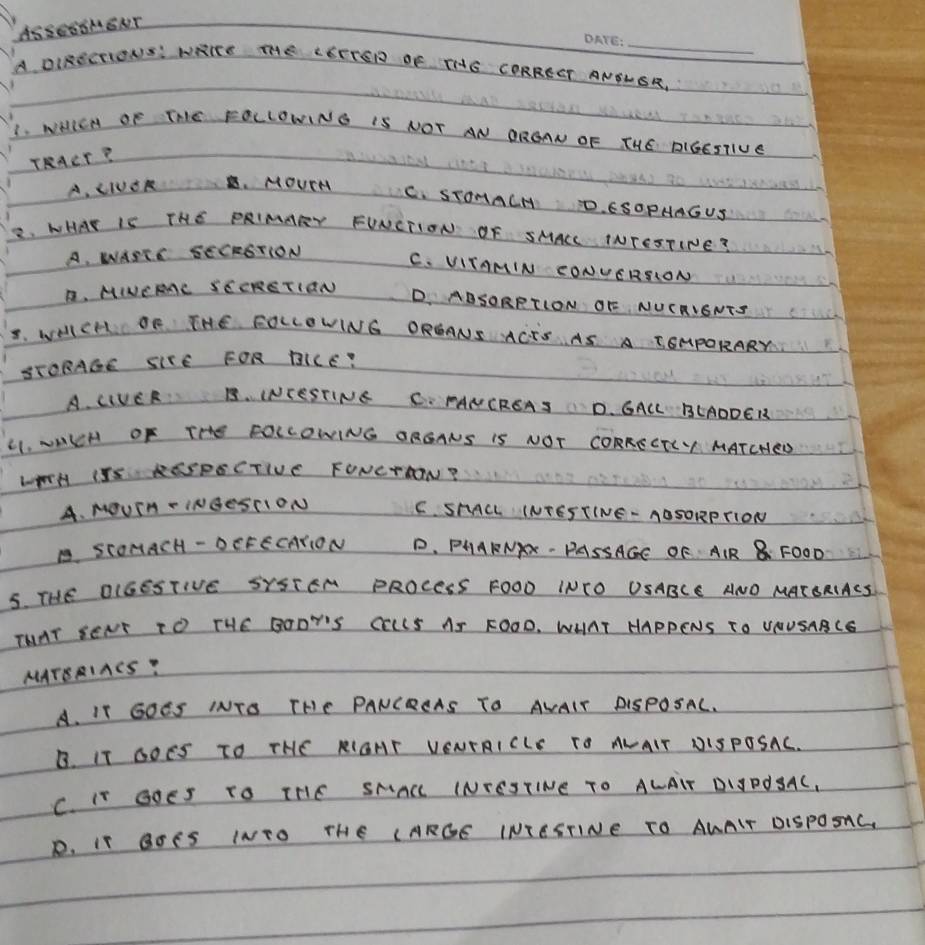 ASSESSMENT
DATE:
A DIRECTIONS: WRITE THE LETTER OF THE CORRECT ANSWER.
1. WHICH OF THE FOLLOWING IS NOT AN ORGAN OF THE DIGESTIVE
TRACT?
A. LIVER B. MOUTH C. STOMACH D. ESOPHAGUS
2. WHAT IS THE PRIMARY FUNCTION OF SMALL INTESTINE?
A. WASTE SECRETION C. VITAMIN CONVERSION
B. MINERAL SECRETION D. ABSORPTION OF NUTRIENTS
3. WHICH OF THE FOLLOWING ORGANS ACTS AS A TEMPORARY
STORAGE SITE FOR BILE?
A. LIVER B. INTESTINE C. PANCREAS D. GALL BLADDER
4. WHICH OF THE FOLLOWING ORGANS IS NOT CORRECTLY MATCHED
WITH ITS RESPECTIVE FUNCTION?
A. MOUTH - INGESTION C. SMALL INTESTINE - ABSORPTION
B STOMACH - DEFECATION D. PHARNYX - PASSAGE OF AIR & FOOD
5. THE DIGESTIVE SYSTEM PROCESS FOOD INTO USABLE AND MATERIALS
THAT SENT TO THE BODY'S CELLS AS FOOD. WHAT HAPPENS TO UNUSABLE
MATERIALS?
A. IT GOES INTO THE PANCREAS TO AWAIT DISPOSAL.
B. IT GOES TO THE RIGHT VENTRICLE TO AWAIT DISPOSAL.
C. IT GOES TO THE SMALL INTESTINE TO AWAIT DISPOSAL.
D. IT GOES INTO THE LARGE INTESTINE TO AWAIT DISPOSAL.